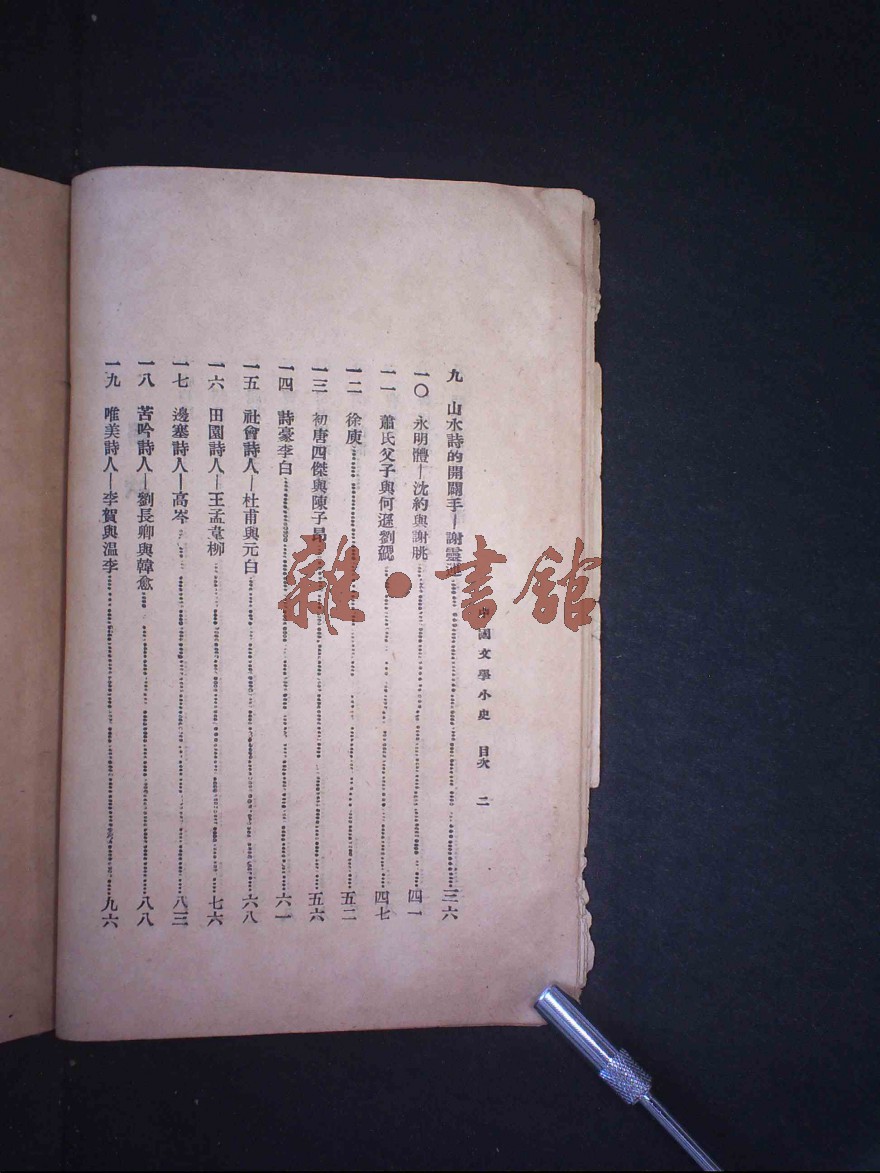 中國文學小史 目次 二
九 山水詩的開闢手—謝靈運……三六
一〇 永明體—沈約與謝朓……四一
一一 蕭氏父子與何遜劉勰……四七
一二 徐庾……五二
一三 初唐四傑與陳子昂……五六
一四 詩豪李白……六一
一五 社會詩人—杜甫與元白……六八
一六 田園詩人—王孟韋柳……七六
一七 邊塞詩人—高岑……八三
一八 苦吟詩人—劉長卿與韓愈……八八
一九 唯美詩人—李賀與溫李……九六
雜·書館